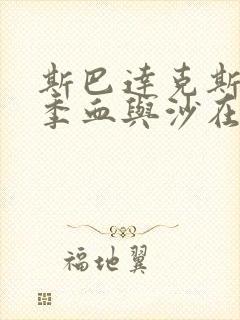 斯巴達克斯
季血與沙在
福地翼